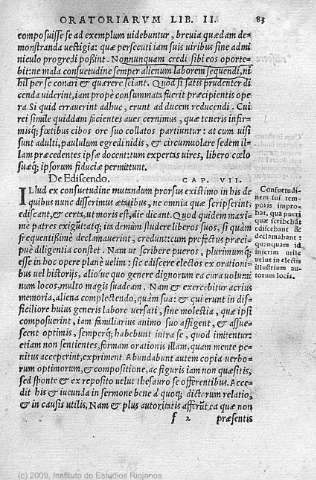 ORATORIARVM LIB. II. 83
composuisse se ad exemplum uidebuntur, breuia quædam de-
monstranda uestigia: quæ persecuti iam suis uiribus sine admi-
niculo progredi possint. Nonnunquam credi sibi eos oporte-
bit: ne mala consuetudine semper alienum laborem sequendi, ni
hil per se conari & quærere sciant. Quòd si satis prudenter di
cenda uiderint, iam propè consummata fuerit præcipientis ope
ra. Si quid errauerint adhuc, erunt ad ducem reducendi. Cui
rei simile quiddam facientes aues cernimus, quæ teneris infir-
misq; fœtibus cibos ore suo collatos partiuntur: at cum uisi
sunt adulti, paululum egredi nidis, & circumuolare sedem il-
lam præcedentes ipsæ docent: tum expertas uires, libero cœlo
suæq; ipsorum fiduciæ permittunt.
De Ediscendo. CAP. VII.
Illud ex consuetudine mutandum prorsus existimo in his de
quibus nunc disserimus ætatibus, ne omnia quæ scripserint,
ediscant, & certa, ut moris est, die dicant. Quod quidem maxi-
mè patres exigunt: atq; ita demum studere liberos suos, si quàm
frequentissimè declamauerint, credunt: cum profectus præci-
puè diligentia constet. Nam ut scribere pueros, plurimumq;
esse in hoc opere planè uelim: sic ediscere electos ex orationi-
bus uel historijs, alioue quo genere dignorum ea cura uolumi
num locos, multo magis suadeam. Nam & exercebitur acrius
memoria, aliena complectendo, quàm sua: & qui erunt in diffi-
ciliore huius generis labore uersati, sine molestia, quæ ipsi
composuerint, iam familiaria animo suo affigent, & assue-
scent optimis, semperq; habebunt intra se, quod imitentur:
etiam non sentientes, formam orationis illam, quam mente pe-
nitus acceperint, expriment. Abundabunt autem copia uerbo-
rum optimorum, & compositione, ac figuris iam non quæsitis,
sed sponte & ex reposito uelut thesauro se offerentibus. Acce-
dit his & iucunda in sermone bene à quoq; dictorum relatio,
& in causis utilis. Nam & plus autoritatis afferūt ea quæ non
f 2 præsentis
Consuetudi-
nem sui tem-
poris impro-
bat, qua pueri
quæ scribebāt
ediscebant &
declamabant:
quanquam id
interim utile
uelut in electis
illustrium au-
torum locis.
(c) 2009, Instituto de Estudios Riojanos